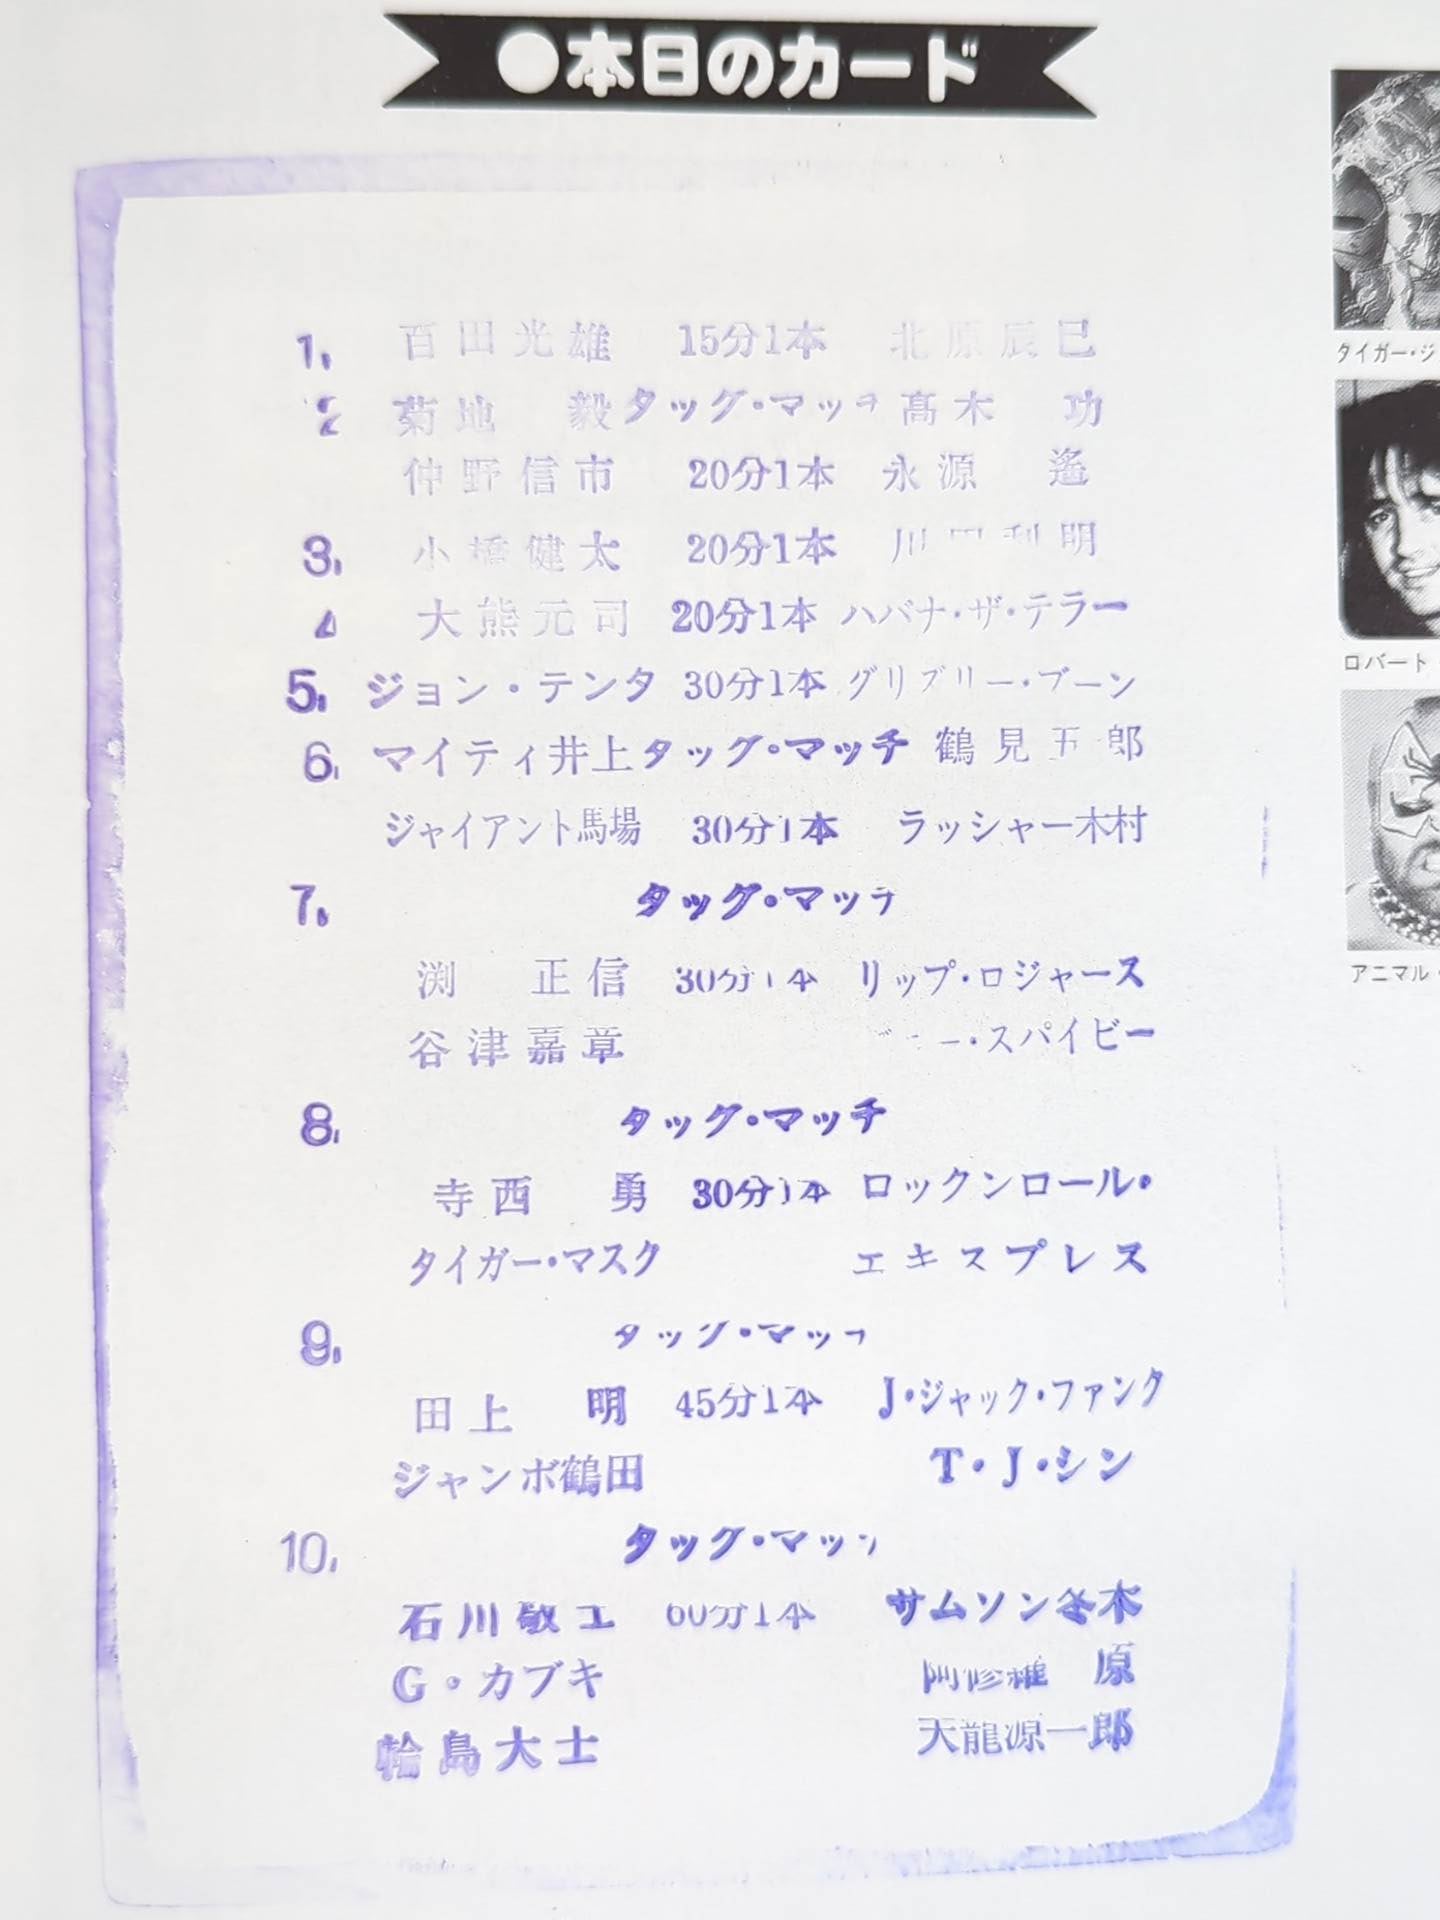 ●本日のカード
1. 百田光雄 15分1本 北原辰巳
2 菊地 毅 タッグ・マッチ 髙木 功
仲野信市 20分1本 永源 遙
3. 小橋健太 20分1本 川田利明
4 大熊元司 20分1本 ハバナ・ザ・テラー
5. ジョン・テンタ 30分1本 グリズリー・ブーン
6. マイティ井上 タッグ・マッチ 鶴見五郎
ジャイアント馬場 30分1本 ラッシャー木村
7. タッグ・マッチ
渕 正信 30分1本 リップ・ロジャース
谷津嘉章 ー・スパイビー
8. タッグ・マッチ
寺西 勇 30分1本 ロックンロール・
タイガー・マスク エキスプレス
9. タッグ・マッチ
田上 明 45分1本 J・ジャック・ファンク
ジャンボ鶴田 T・J・シン
10. タッグ・マッチ
石川敬士 60分1本 サムソン冬木
G・カブキ 阿修羅 原
輪島大士 天龍源一郎
タイガー・ジ
ロバート・
アニマル・